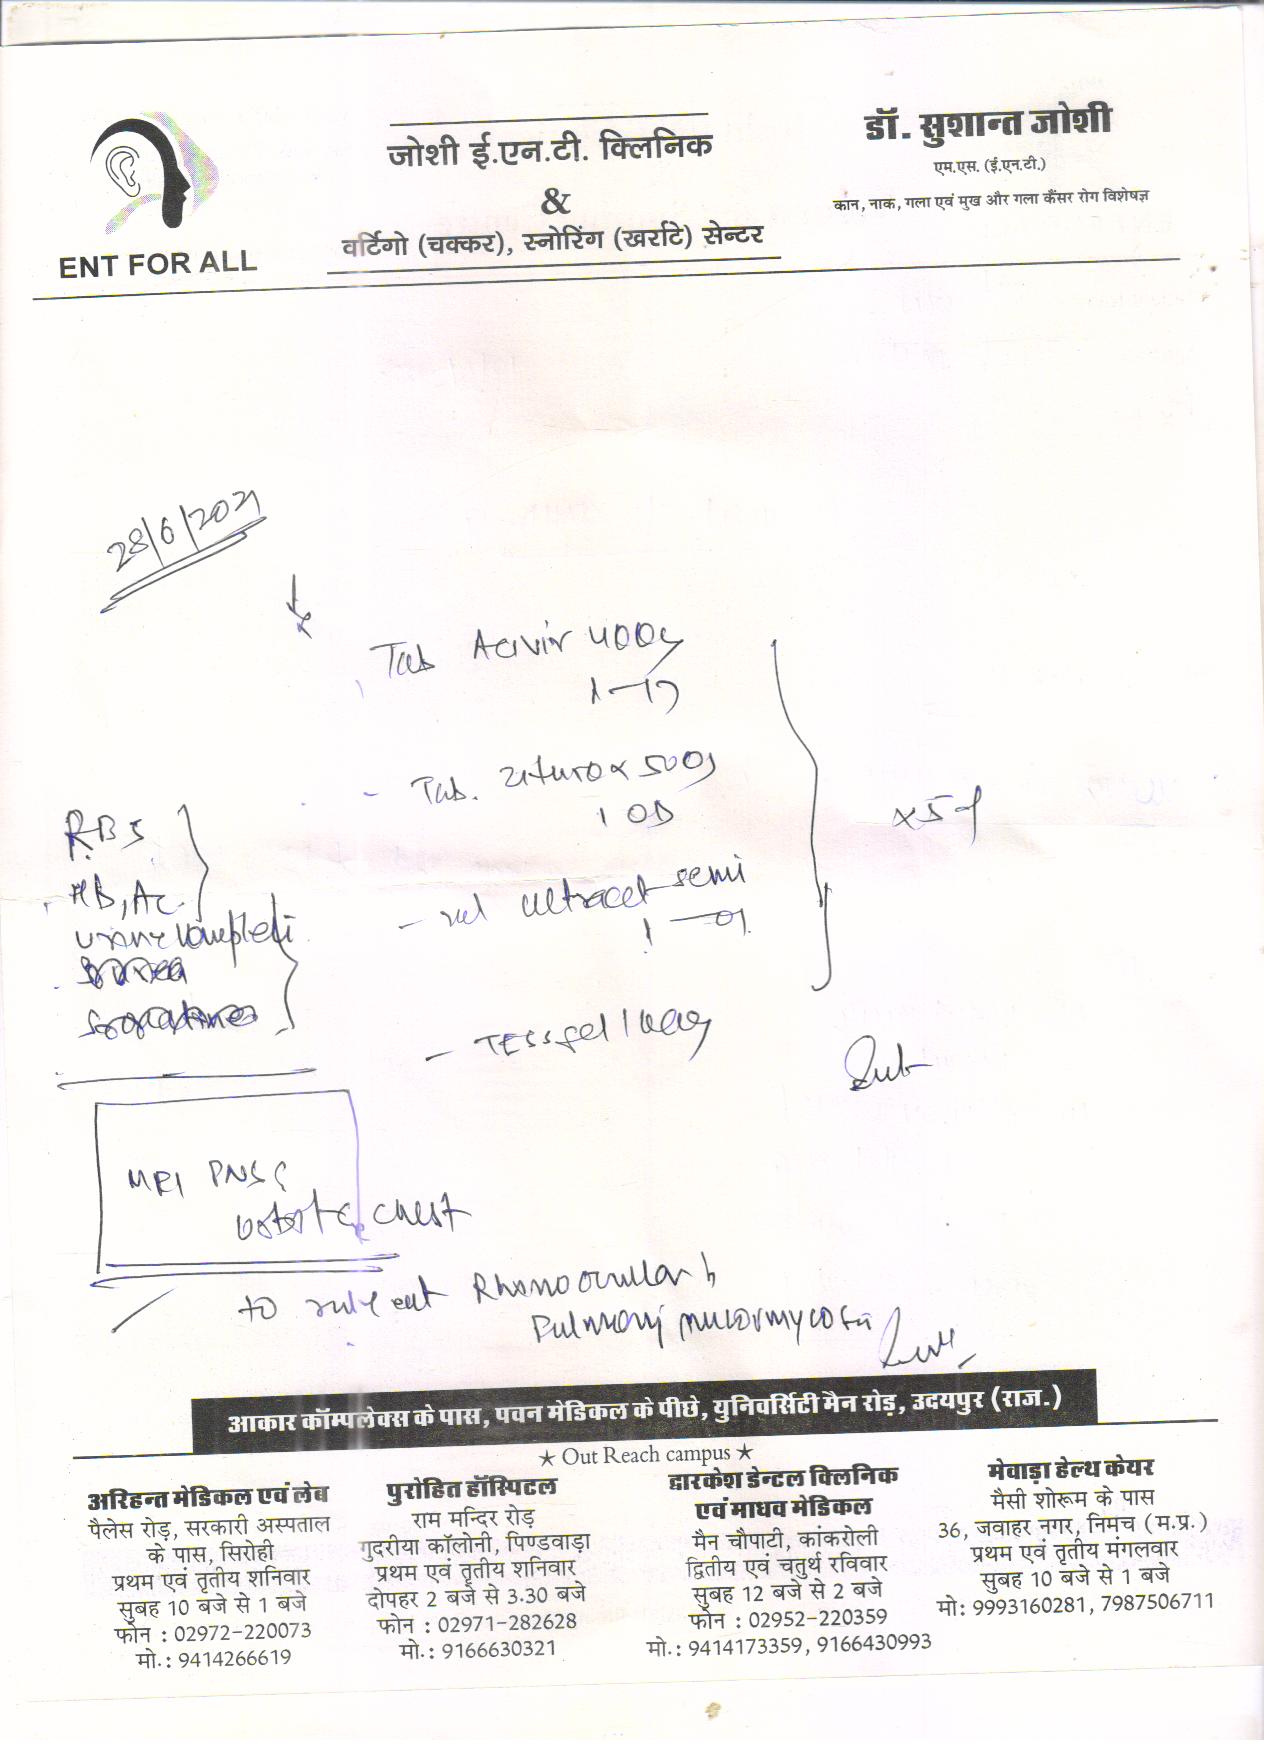 ENT FOR ALL
जोशी ई.एन.टी. क्लिनिक
&
वर्टिगो (चक्कर), स्नोरिंग (खर्राटे) सेन्टर
डॉ. सुशान्त जोशी
एम.एस. (ई.एन.टी.)
कान, नाक, गला एवं मुख और गला कैंसर रोग विशेषज्ञ
28/6/2021
Tab
400
Tab. 500
1 OD
x5
Ultracet semi
RBS
HB,
urine complete
MRI PNS
chest
to rule out
Pulmonary mucormycosis
आकार कॉम्पलेक्स के पास, पवन मेडिकल के पीछे, युनिवर्सिटी मैन रोड़, उदयपुर (राज.)
★ Out Reach campus ★
अरिहन्त मेडिकल एवं लेब
पैलेस रोड़, सरकारी अस्पताल
के पास, सिरोही
प्रथम एवं तृतीय शनिवार
सुबह 10 बजे से 1 बजे
फोन : 02972-220073
मो.: 9414266619
पुरोहित हॉस्पिटल
राम मन्दिर रोड़
गुदरीया कॉलोनी, पिण्डवाड़ा
प्रथम एवं तृतीय शनिवार
दोपहर 2 बजे से 3.30 बजे
फोन : 02971-282628
मो.: 9166630321
द्वारकेश डेन्टल क्लिनिक
एवं माधव मेडिकल
मैन चौपाटी, कांकरोली
द्वितीय एवं चतुर्थ रविवार
सुबह 12 बजे से 2 बजे
फोन : 02952-220359
मो.: 9414173359, 9166430993
मेवाड़ा हेल्थ केयर
मैसी शोरूम के पास
36, जवाहर नगर, निमच (म.प्र.)
प्रथम एवं तृतीय मंगलवार
सुबह 10 बजे से 1 बजे
मो: 9993160281, 7987506711